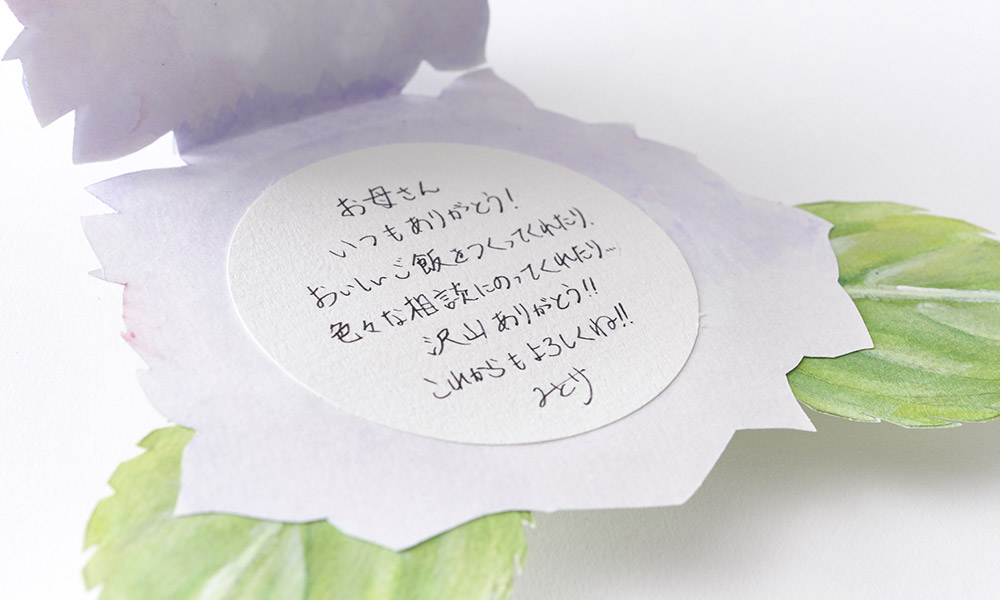 お母さん
いつもありがとう!
おいしいご飯をつくってくれたり.
色々な相談にのってくれたり...
沢山ありがとう!!
これからもよろしくね!!
みどり